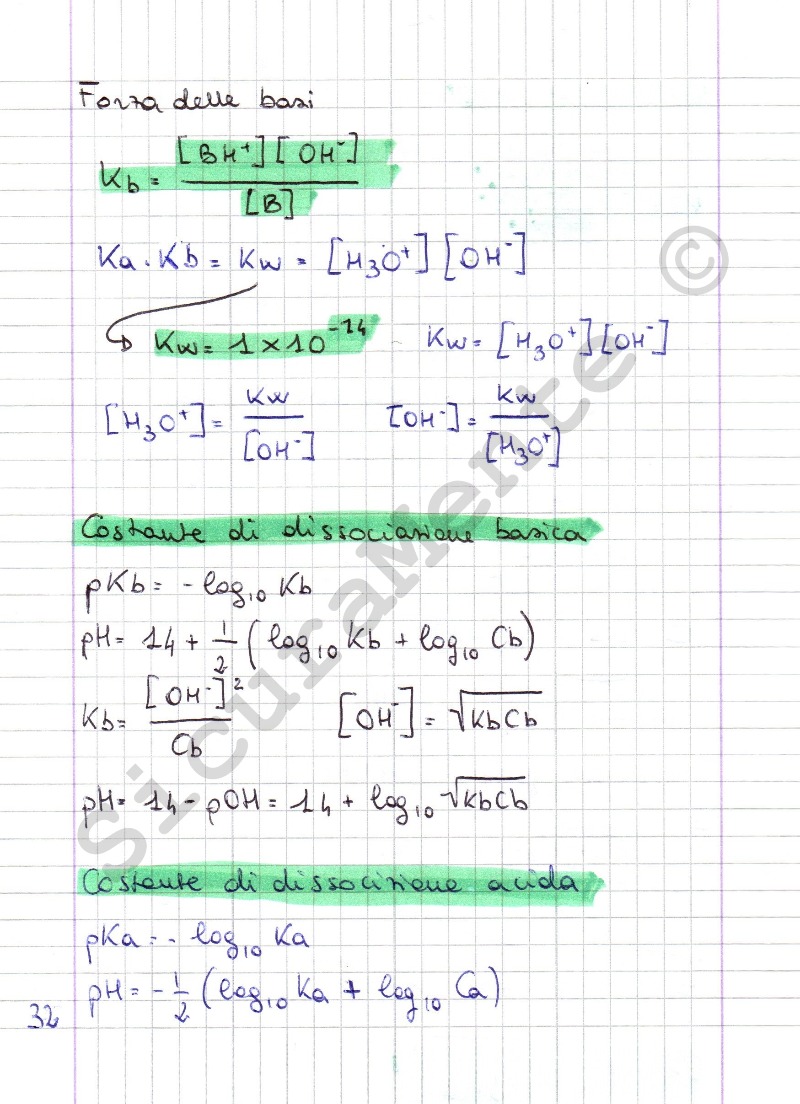 Forza delle basi
Kb = [BH⁺][OH⁻] / [B]
Ka · Kb = Kw = [H₃O⁺][OH⁻]
Kw = 1 × 10⁻¹⁴ Kw = [H₃O⁺][OH⁻]
[H₃O⁺] = Kw / [OH⁻] [OH⁻] = Kw / [H₃O⁺]
Costante di dissociazione basica
pKb = - log₁₀ Kb
pH = 14 + 1/2 (log₁₀ Kb + log₁₀ Cb)
Kb = [OH⁻]² / Cb [OH⁻] = √KbCb
pH = 14 - pOH = 14 + log₁₀ √KbCb
Costante di dissocizione acida
pKa = - log₁₀ Ka
pH = - 1/2 (log₁₀ Ka + log₁₀ Ca)
32
SicuraMente ©